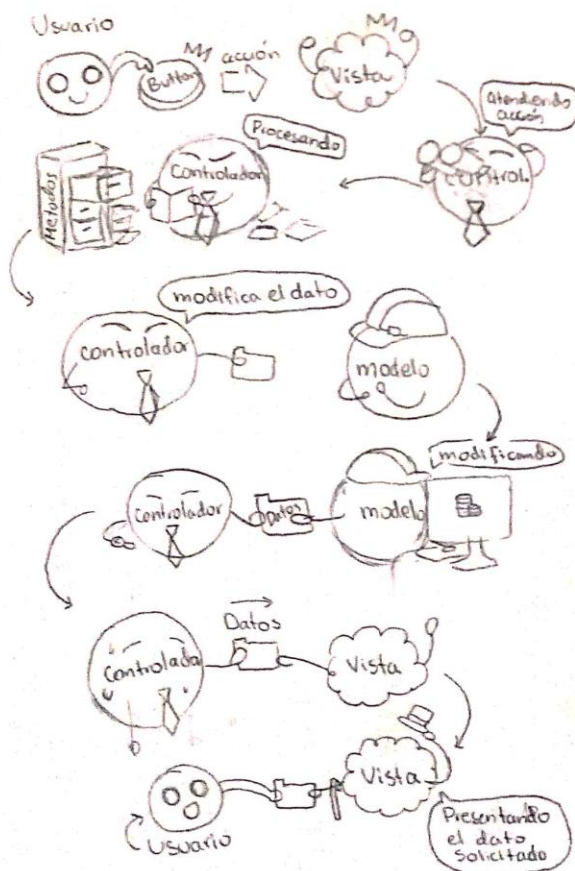 Usuario
Button
acción
Vista
atendiendo
acción
Procesando
Metodos
controlador
control
modifica el dato
controlador
modelo
modificando
controlador
Datos
modelo
Datos
Controlado
Vista
Vista
Usuario
Presentando
el dato
solicitado